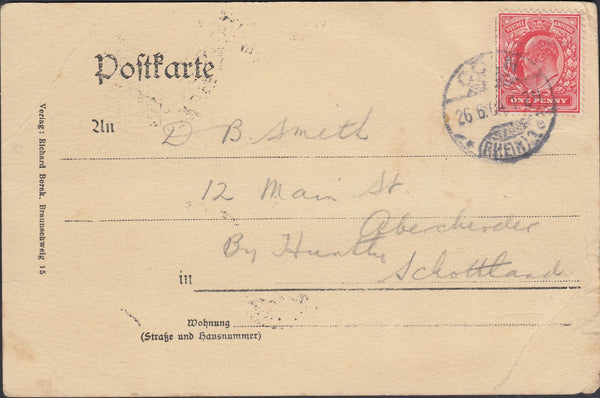 Postkarte
POSTAGE REVENUE
ONE PENNY
26.6.04
(RHEIN)
An D B Smith
12 Main St.
Aberchirder
By Huntly
in Schottland
Wohnung
(Straße und Hausnummer)
Verlag: Richard Borek, Braunschweig 15